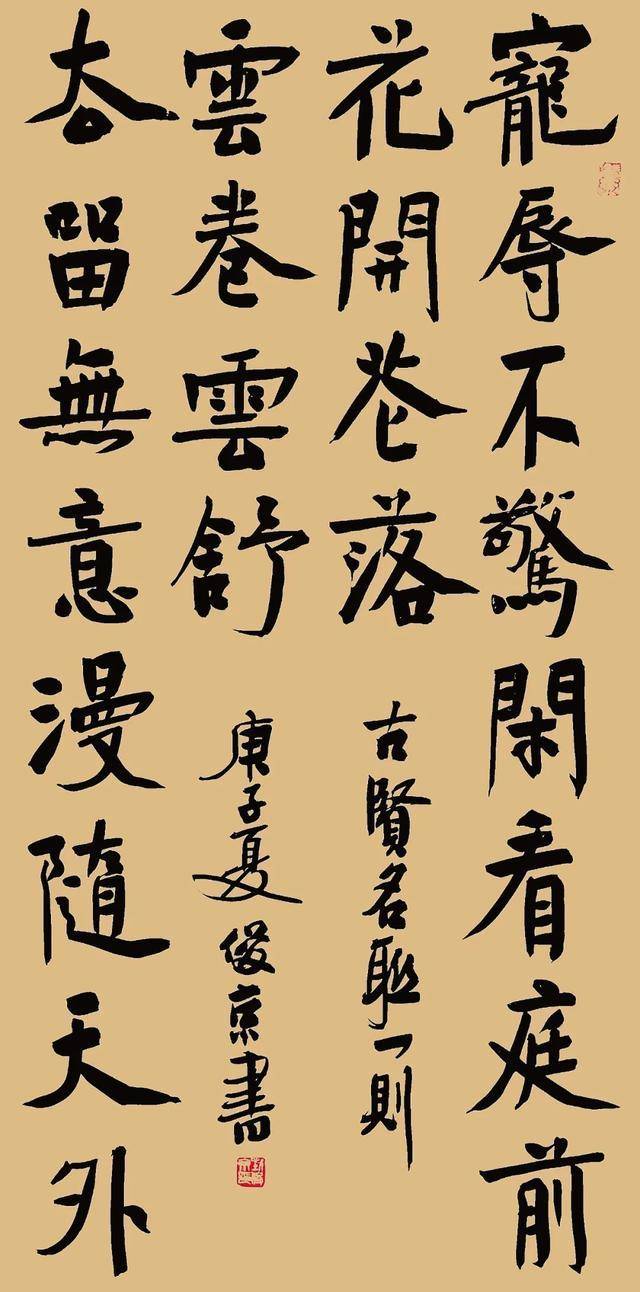 寵辱不驚閑看庭前
花開花落
去留無意漫隨天外
雲卷雲舒
古賢名聯一則
庚子夏俊京書